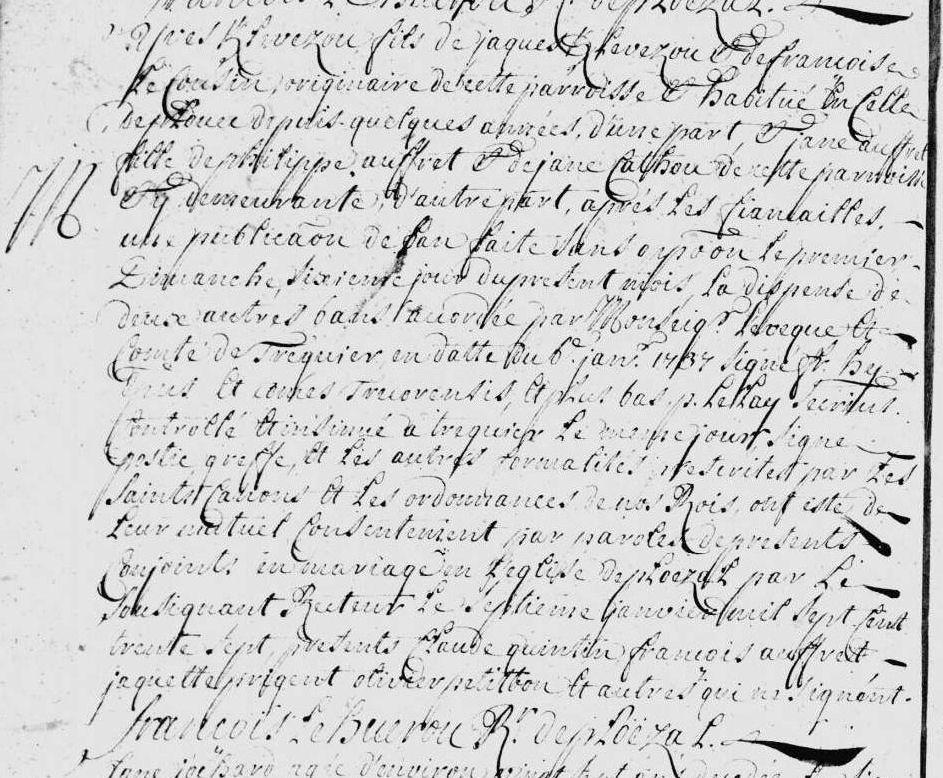 francois Le huerou R.r de ploëzal.
Yves K/levezou fils de jaques K/levezou & de francoise
Le Cousin, originaire de cette parroisse & habitué En Celle
de plouec depuis quelques années, d'une part, & jane auffret
fille de philippe auffret & de jane Calhou de cette parroisse
& y demeurante, d'autre part, aprés Les fiancailles,
une publicaõn de ban faite sans oppoõn Le premier
Dimanche, sixieme jour du present mois, La dispense de
deux autres bans accordée par Monseig.r Leveque Et
Comte de Treguier en datte du 6.e janv.r 1737 signé
Et comes Trecorensis, Et plus bas p. Le Lay
Controllé Et insinué a treguier Le meme jour, signé
greffe, Et Les autres formalités prescrites par Les
Saints Canons Et Les ordonnances de nos Rois, ont esté, de
Leur mutuel Consentement par paroles de presents
Conjoints en mariage en L'eglise de ploezal par Le
Sousignant Recteur Le septieme janvier mil sept Cent
trente sept, presents Claude quintin francois auffret
jaquette prigent olivier petitbon Et autres qui ne signént.
francois Le huerou R.r de ploëzal.
agée d'environ